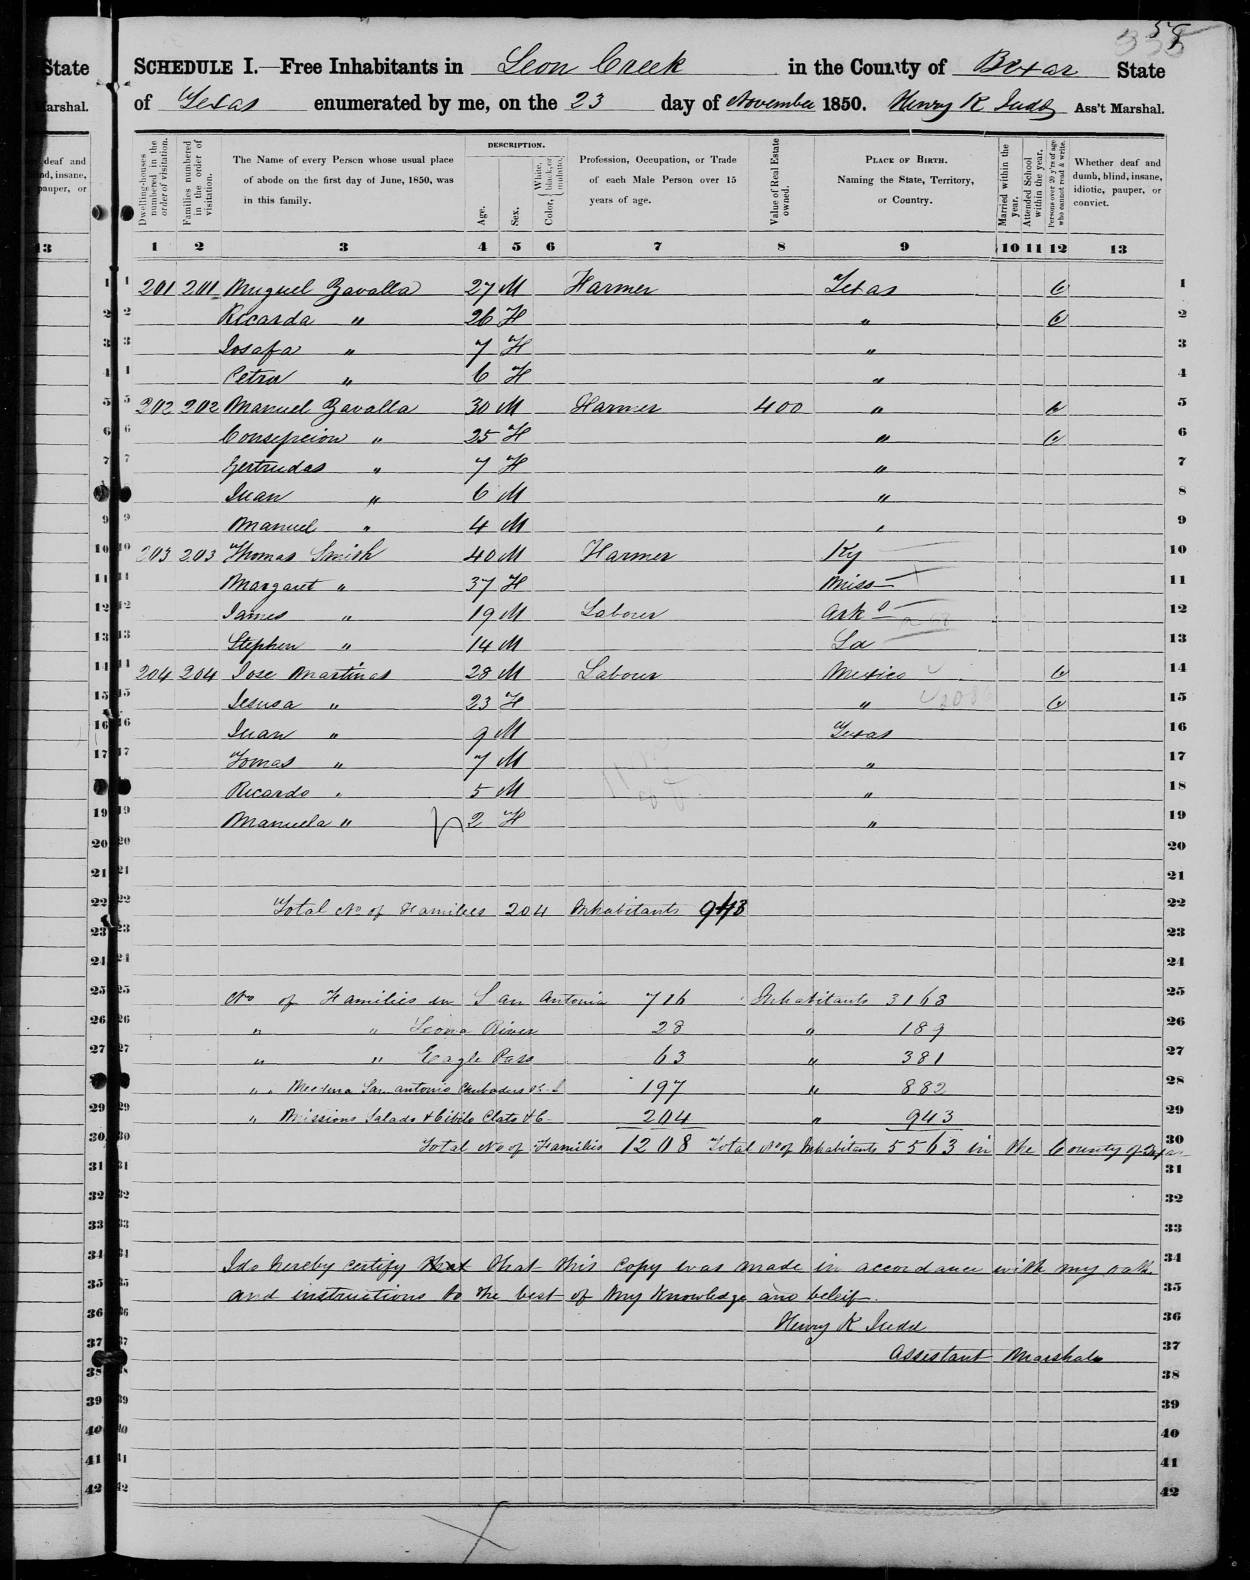 58
State
Marshal.
SCHEDULE I.—Free Inhabitants in Leon Creek in the County of Bexar State
of Texas enumerated by me, on the 23 day of November 1850. Henry K Judd Ass't Marshal.
Dwelling-houses numbered in the order of visitation.
Families numbered in the order of visitation.
The Name of every Person whose usual place of abode on the first day of June, 1850, was in this family.
DESCRIPTION.
Age.
Sex.
Color, { White, black, or mulatto.
Profession, Occupation, or Trade of each Male Person over 15 years of age.
Value of Real Estate owned.
PLACE OF BIRTH. Naming the State, Territory, or Country.
Married within the year.
Attended School within the year.
Persons over 20 y'rs of age who cannot read & write.
Whether deaf and dumb, blind, insane, idiotic, pauper, or convict.
1 2 3 4 5 6 7 8 9 10 11 12 13
1 201 201 Miguel Zavalla 27 M Farmer Texas 1
2 Ricarda " 26 F " 2
3 Josafa " 7 F " 3
4 Petra " 6 F " 4
5 202 202 Manuel Zavalla 30 M Farmer 400 " 5
6 Consepcion " 25 F " 6
7 Gertrudas " 7 F " 7
8 Juan " 6 M " 8
9 Manuel " 4 M " 9
10 203 203 Thomas Smith 40 M Farmer Ky 10
11 Margaret " 37 F Miss 11
12 James " 19 M Labourer Ark s 12
13 Stephen " 14 M La 13
14 204 204 Jose Martinas 28 M Labour Mexico 14
15 Jesusa " 23 F " 15
16 Juan " 9 M Texas 16
17 Tomas " 7 M " 17
18 Ricardo " 5 M " 18
19 Manuela " 2 F " 19
20
21
22 Total No of Families 204 Inhabitants 943 22
23
24
25 No of Families in San Antonio 716 Inhabitants 3168 25
26 " " Leona River 28 " 189 26
27 " " Eagle Pass 63 " 381 27
28 " " Medina San antonio 197 " 882 28
29 " Missions Salado & Cibilo Clato & C 204 " 943 29
30 Total No of Families 1208 Total No of Inhabitants 5563 in the County of Bexar 30
31
32
33
34 I do hereby certify that that this Copy was made in accordance with my oath 34
35 and instructions to the best of my Knowledge and beleif. 35
36 Henry K Judd 36
37 Assistant Marshal 37
38
39
40
41
42